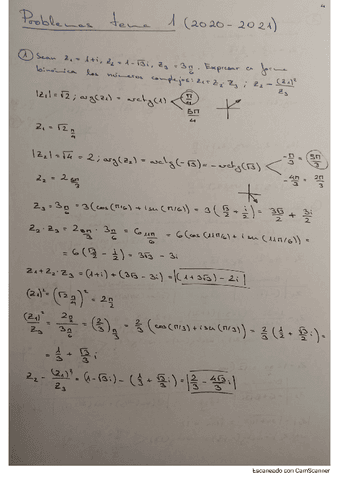 Problemas tema 1 (2020-2021)
① Sean z₁=1+i, z₂=1-√3i, z₃=3_{π/6}. Expresar en forma
binómica los números complejos: z₁+z₂·z₃ ; z₂-(z₁)²/z₃
|z₁|=√2 ; arg(z₁)=arctg(1) < π/4
5π/4
z₁=√2_{π/4}
|z₂|=√4=2 ; arg(z₂)=arctg(-√3)=-arctg(√3) < -π/3 = 5π/3
-4π/3 = 2π/3
z₂=2_{5π/3}
z₃=3_{π/6}=3(cos(π/6)+i sen(π/6))=3(√3/2+i/2)=3√3/2+3i/2
z₂·z₃=2_{5π/3}·3_{π/6}=6_{11π/6}=6(cos(11π/6)+i sen(11π/6))=
=6(√3/2-i/2)=3√3-3i
z₁+z₂·z₃=(1+i)+(3√3-3i)=(1+3√3)-2i
(z₁)²=(√2_{π/4})²=2_{π/2}
(z₁)²/z₃=2_{π/2}/3_{π/6}=(2/3)_{π/3}=2/3(cos(π/3)+i sen(π/3))=2/3(1/2+√3/2 i)=
=1/3+√3/3 i
z₂-(z₁)²/z₃=(1-√3i)-(1/3+√3/3 i)=2/3-4√3/3 i
Escaneado con CamScanner